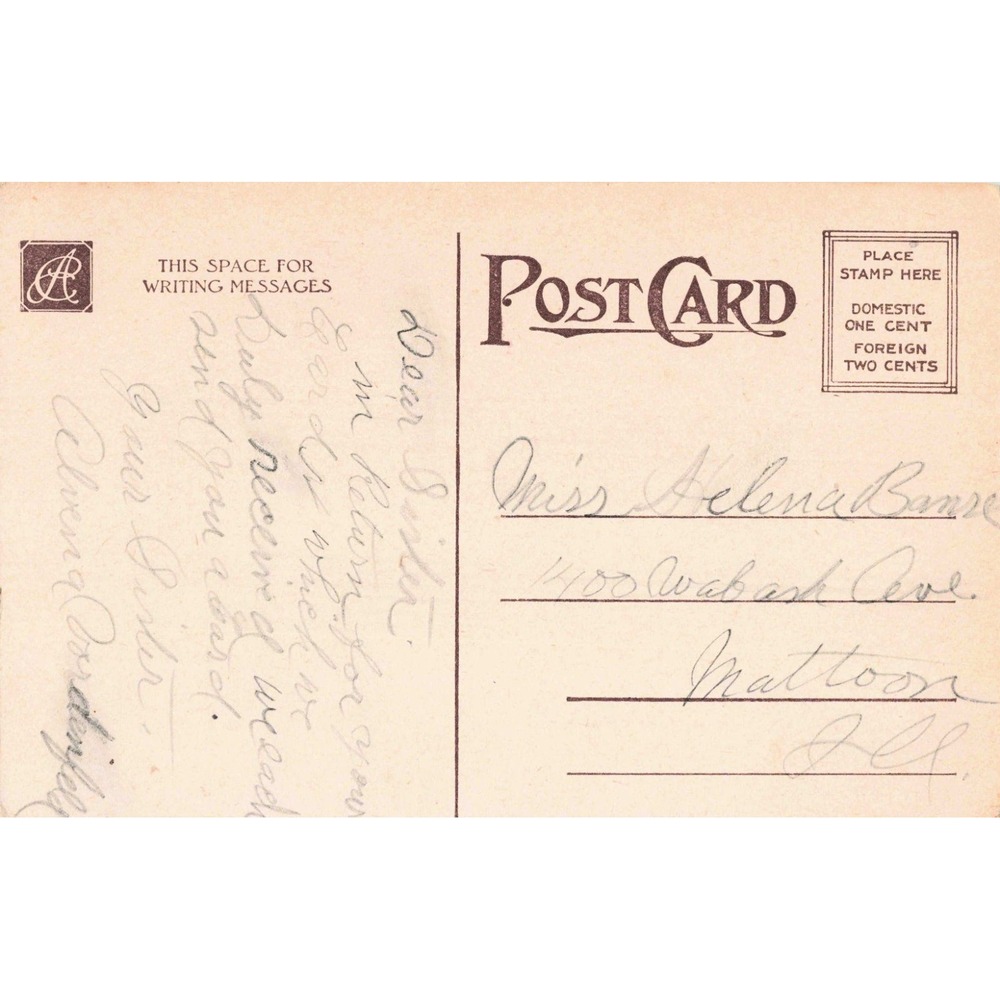 THIS SPACE FOR
WRITING MESSAGES
Dear Sister.
in Return for your
Card
Duly received we each
send you a card.
your Sister,
Alvena
POST CARD
PLACE
STAMP HERE
DOMESTIC
ONE CENT
FOREIGN
TWO CENTS
Miss Helena
1400 Wabash Ave.
Mattoon
Ill.